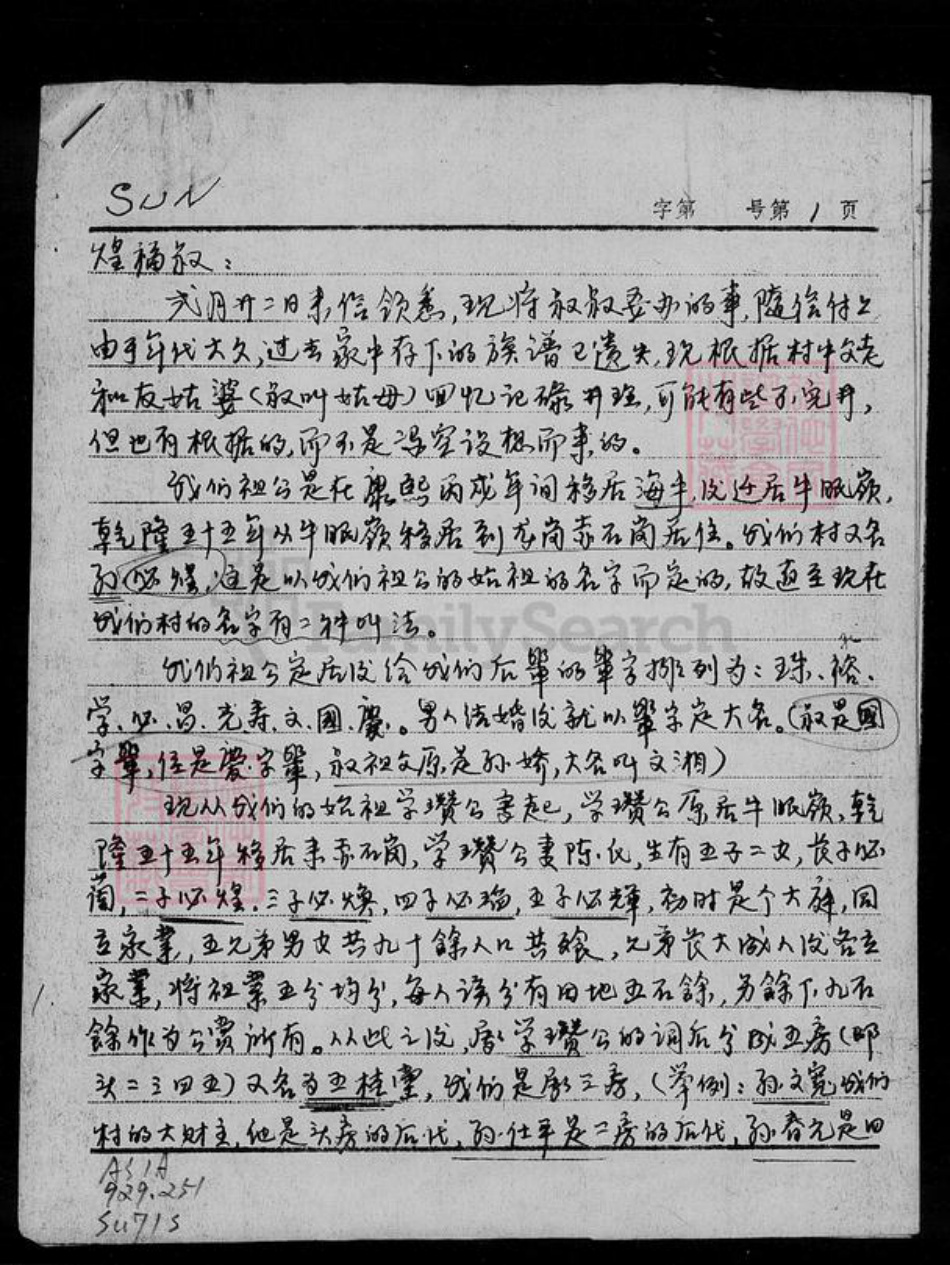 SUN
字第 号第 1 页
煌福叔：
弍月廿二日来信领悉，现将叔叔委办的事，随信付上
由于年代太久，过去家中存下的族谱已遗失，现根据村中父老
和友姑婆（叔叫姑母）回忆记碌井理，可能有些不完井，
但也有根据的，而不是凭空设想而来的。
我们祖公是在康熙丙戍年间移居海丰，后迁居牛眠嶺，
乾隆五十五年从牛眠嶺移居到龙岗赤石岗居住。我们村又名
孙必煌，这是以我们祖公的始祖的名字而定的，故直至现在
我们村的名字有二种叫法。
我们祖公定居后给我们后輩的輩字排列为：珠、裕、
学、必、昌、光、寿、文、國、慶。男人结婚后就以輩字定大名。（叔是國
字輩，侄是慶字輩，叔祖父原是孙娇，大名叫文湘）
现从我们的始祖学瓚公書起，学瓚公原居牛眠嶺，乾
隆五十五年移居来赤石岗，学瓚公妻陈氏，生有五子二女，长子必
蔺，二子必煌，三子必焕，四子必瑞，五子必輝，初时是个大群，同
立家業，五兄弟男女共九十餘人口共飧，兄弟长大成人后各立
家業，将祖業五分均分，每人该分有田地五石餘，另餘下九石
餘作为公赏所有。从此之后，學瓚公的祠后分成五房（即
头二三四五）又名为五桂堂，我们是第三房，（举例：孙文寬我们
村的大财主，他是头房的后代，孙仕平是二房的后代，孙春光是四
ASIA
929.251
Su71s
FamilySearch